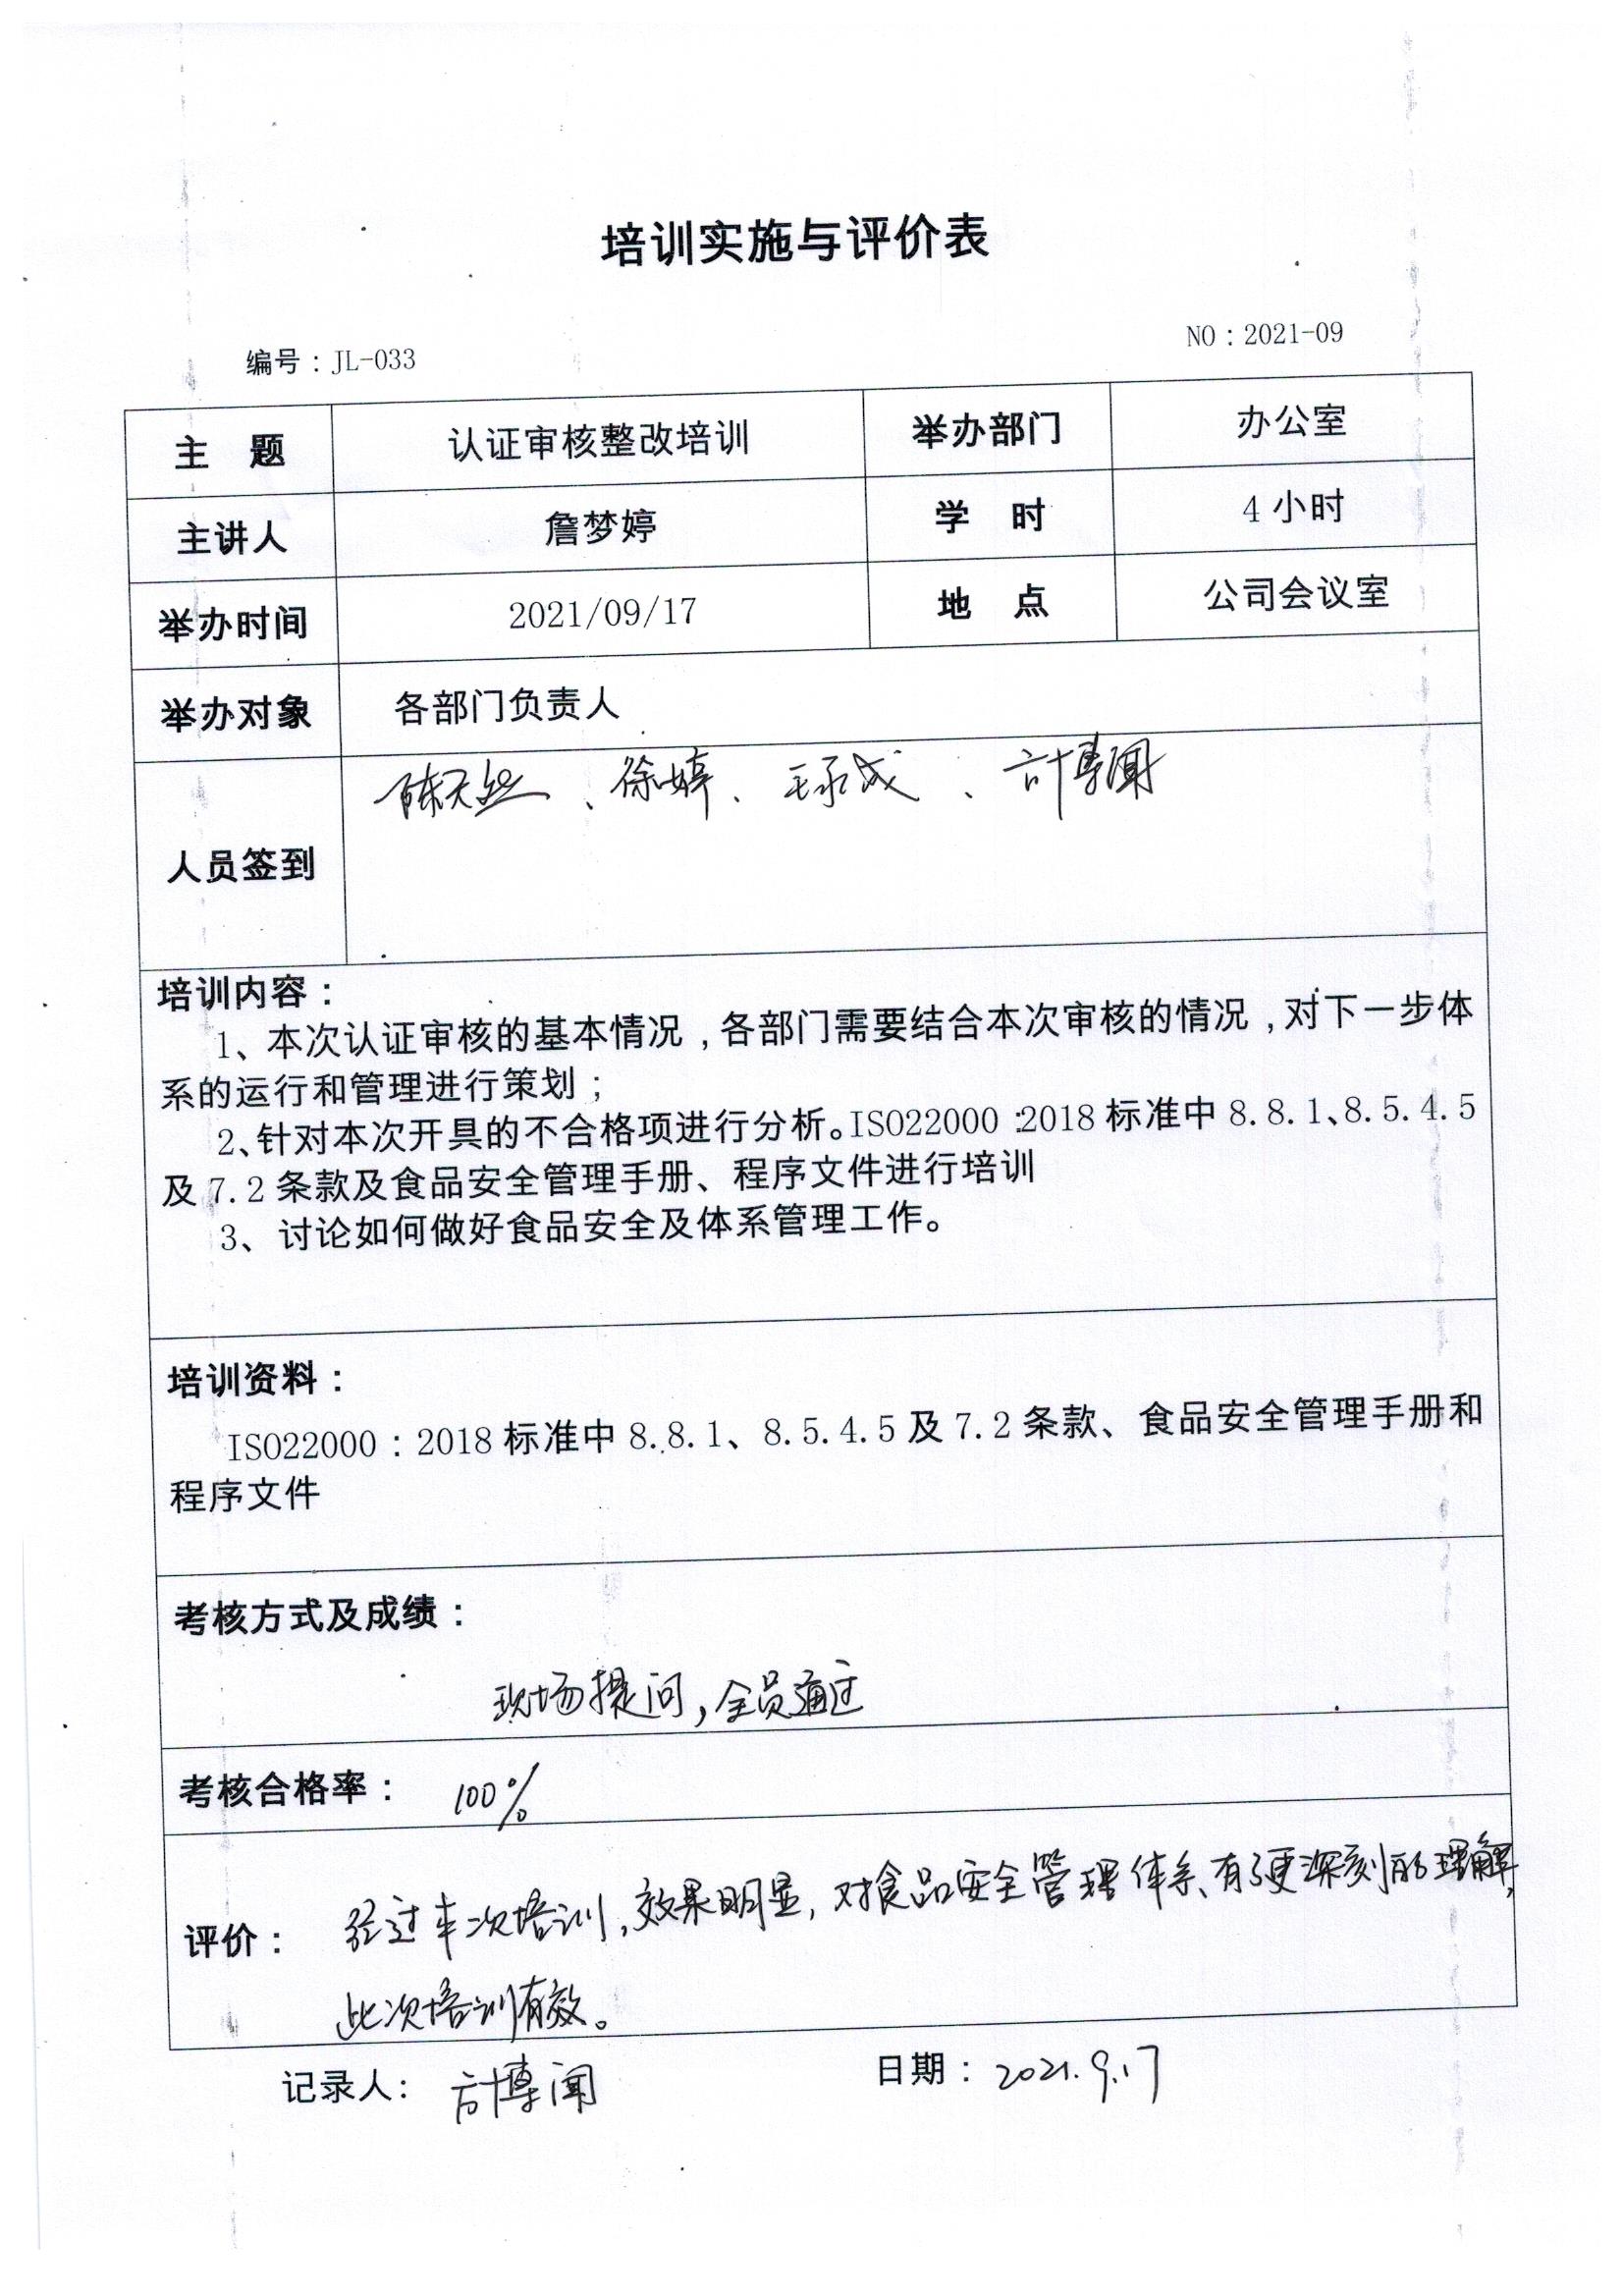 培训实施与评价表
编号：JL-033
NO：2021-09
主 题 认证审核整改培训 举办部门 办公室
主讲人 詹梦婷 学 时 4 小时
举办时间 2021/09/17 地 点 公司会议室
举办对象 各部门负责人
人员签到 陈天 、徐婷、 、计博闻
培训内容：
1、本次认证审核的基本情况，各部门需要结合本次审核的情况，对下一步体
系的运行和管理进行策划；
2、针对本次开具的不合格项进行分析。ISO22000：2018 标准中 8.8.1、8.5.4.5
及 7.2 条款及食品安全管理手册、程序文件进行培训
3、讨论如何做好食品安全及体系管理工作。
培训资料：
ISO22000：2018 标准中 8.8.1、8.5.4.5 及 7.2 条款、食品安全管理手册和
程序文件
考核方式及成绩：
现场提问，全员通过
考核合格率： 100%
评价： 经过本次培训，效果明显，对食品安全管理体系有了更深刻的理解，
此次培训有效。
记录人： 计博闻 日期：2021.9.17